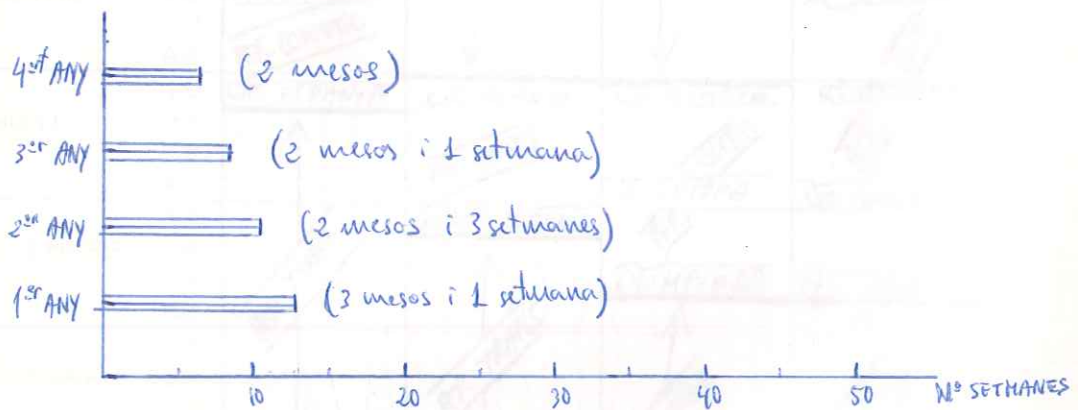 4art ANY (2 mesos)
3er ANY (2 mesos i 1 setmana)
2on ANY (2 mesos i 3 setmanes)
1er ANY (3 mesos i 1 setmana)
10 20 30 40 50 Nº SETMANES